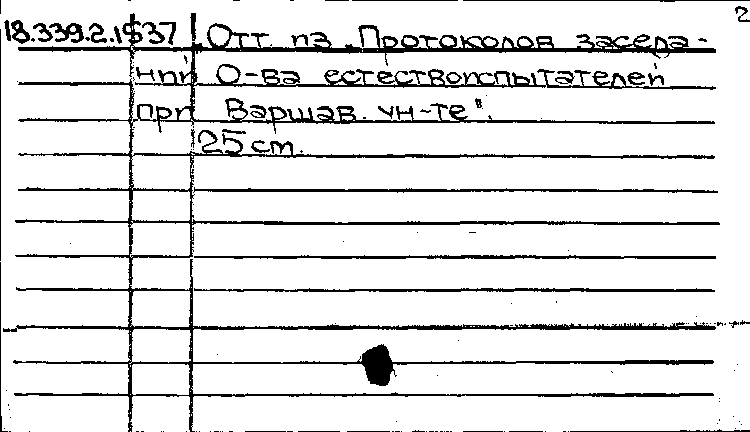 2
18.339.2.1537 Отт. из „Протоколов заседа-
ний О-ва естествоиспытателей
при Варшав. ун-те".
25 cm.